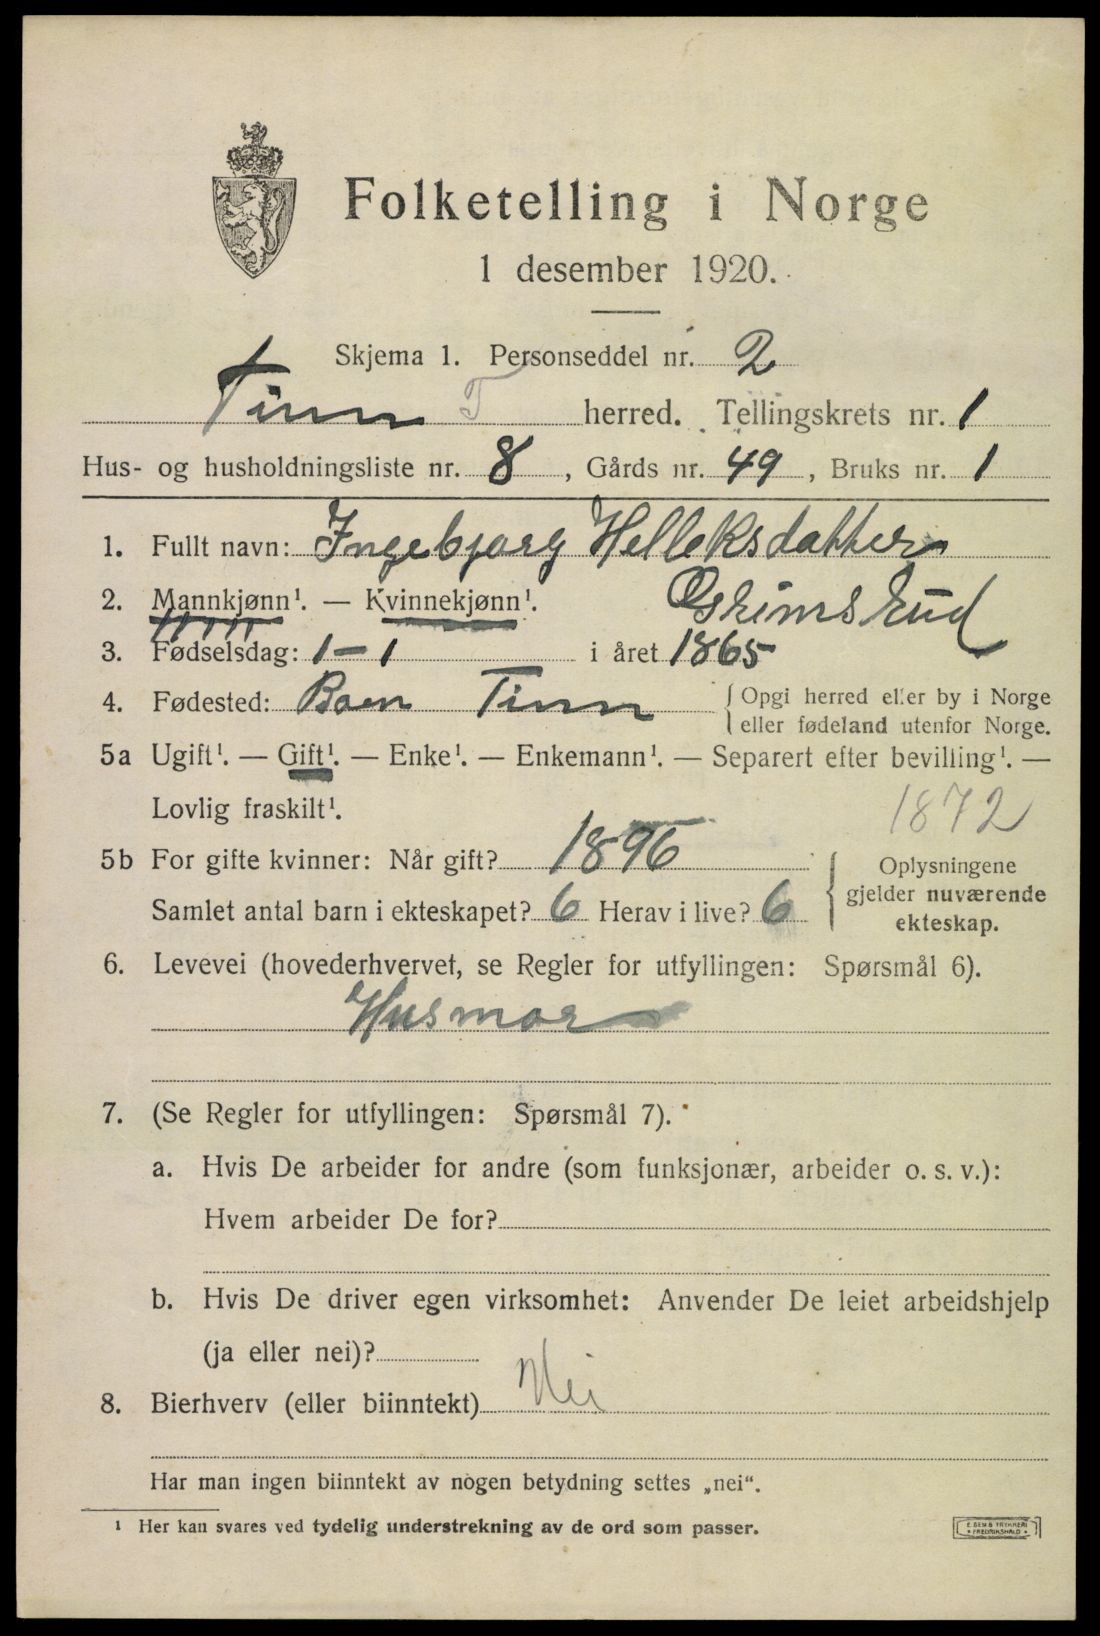 Folketelling i Norge
1 desember 1920.
Skjema 1. Personseddel nr. 2
Tinn T herred. Tellingskrets nr. 1
Hus- og husholdningsliste nr. 8, Gårds nr. 49, Bruks nr. 1
1. Fullt navn: Ingebjorg Helleksdatter
2. Mannkjønn¹. — Kvinnekjønn¹.
3. Fødselsdag: 1-1 i året 1865
4. Fødested: Boen Tinn { Opgi herred eller by i Norge
eller fødeland utenfor Norge.
5a Ugift¹. — Gift¹. — Enke¹. — Enkemann¹. — Separert efter bevilling¹. —
Lovlig fraskilt¹. 1872
5b For gifte kvinner: Når gift? 1896
Samlet antal barn i ekteskapet? 6 Herav i live? 6
{ Oplysningene
gjelder nuværende
ekteskap.
6. Levevei (hovederhvervet, se Regler for utfyllingen: Spørsmål 6).
Husmor
7. (Se Regler for utfyllingen: Spørsmål 7).
a. Hvis De arbeider for andre (som funksjonær, arbeider o. s. v.):
Hvem arbeider De for?
b. Hvis De driver egen virksomhet: Anvender De leiet arbeidshjelp
(ja eller nei)?
8. Bierhverv (eller biinntekt) Nei
Har man ingen biinntekt av nogen betydning settes „nei“.
¹ Her kan svares ved tydelig understrekning av de ord som passer.
E. SEM'S TRYKKERI
• FREDRIKSHALD •